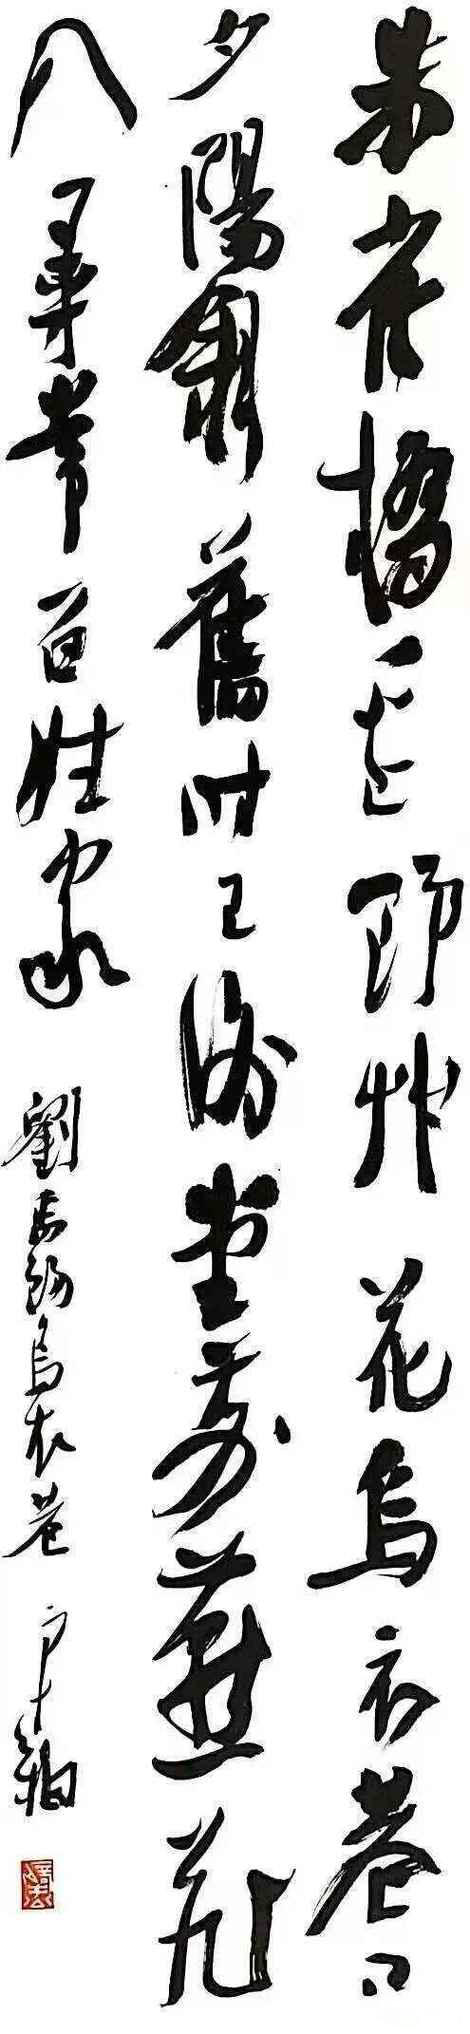 朱雀橋邊野艸花烏衣巷口
夕陽斜舊时王謝堂前燕飛
入尋常百姓家
劉禹錫烏衣巷